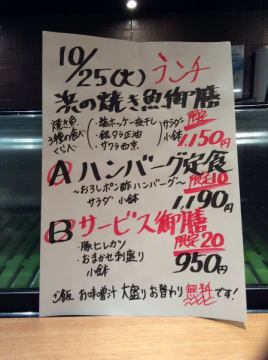 10/25(火) ランチ
炭の焼き魚御膳
焼き魚
3種の食べ
くらべ
・塩ホッケ一夜干し
・銀ダラ正油
・サワラ西京
サラダ
小鉢
限定
1,150円
A ハンバーグ定食
〜おろしポン酢ハンバーグ〜
サラダ 小鉢
限定10
1,190円
B サービス御膳
・豚ヒレカツ
・おまかせ刺盛り
小鉢
限定20
950円
ご飯 お味噌汁 大盛り お替わり 無料です!